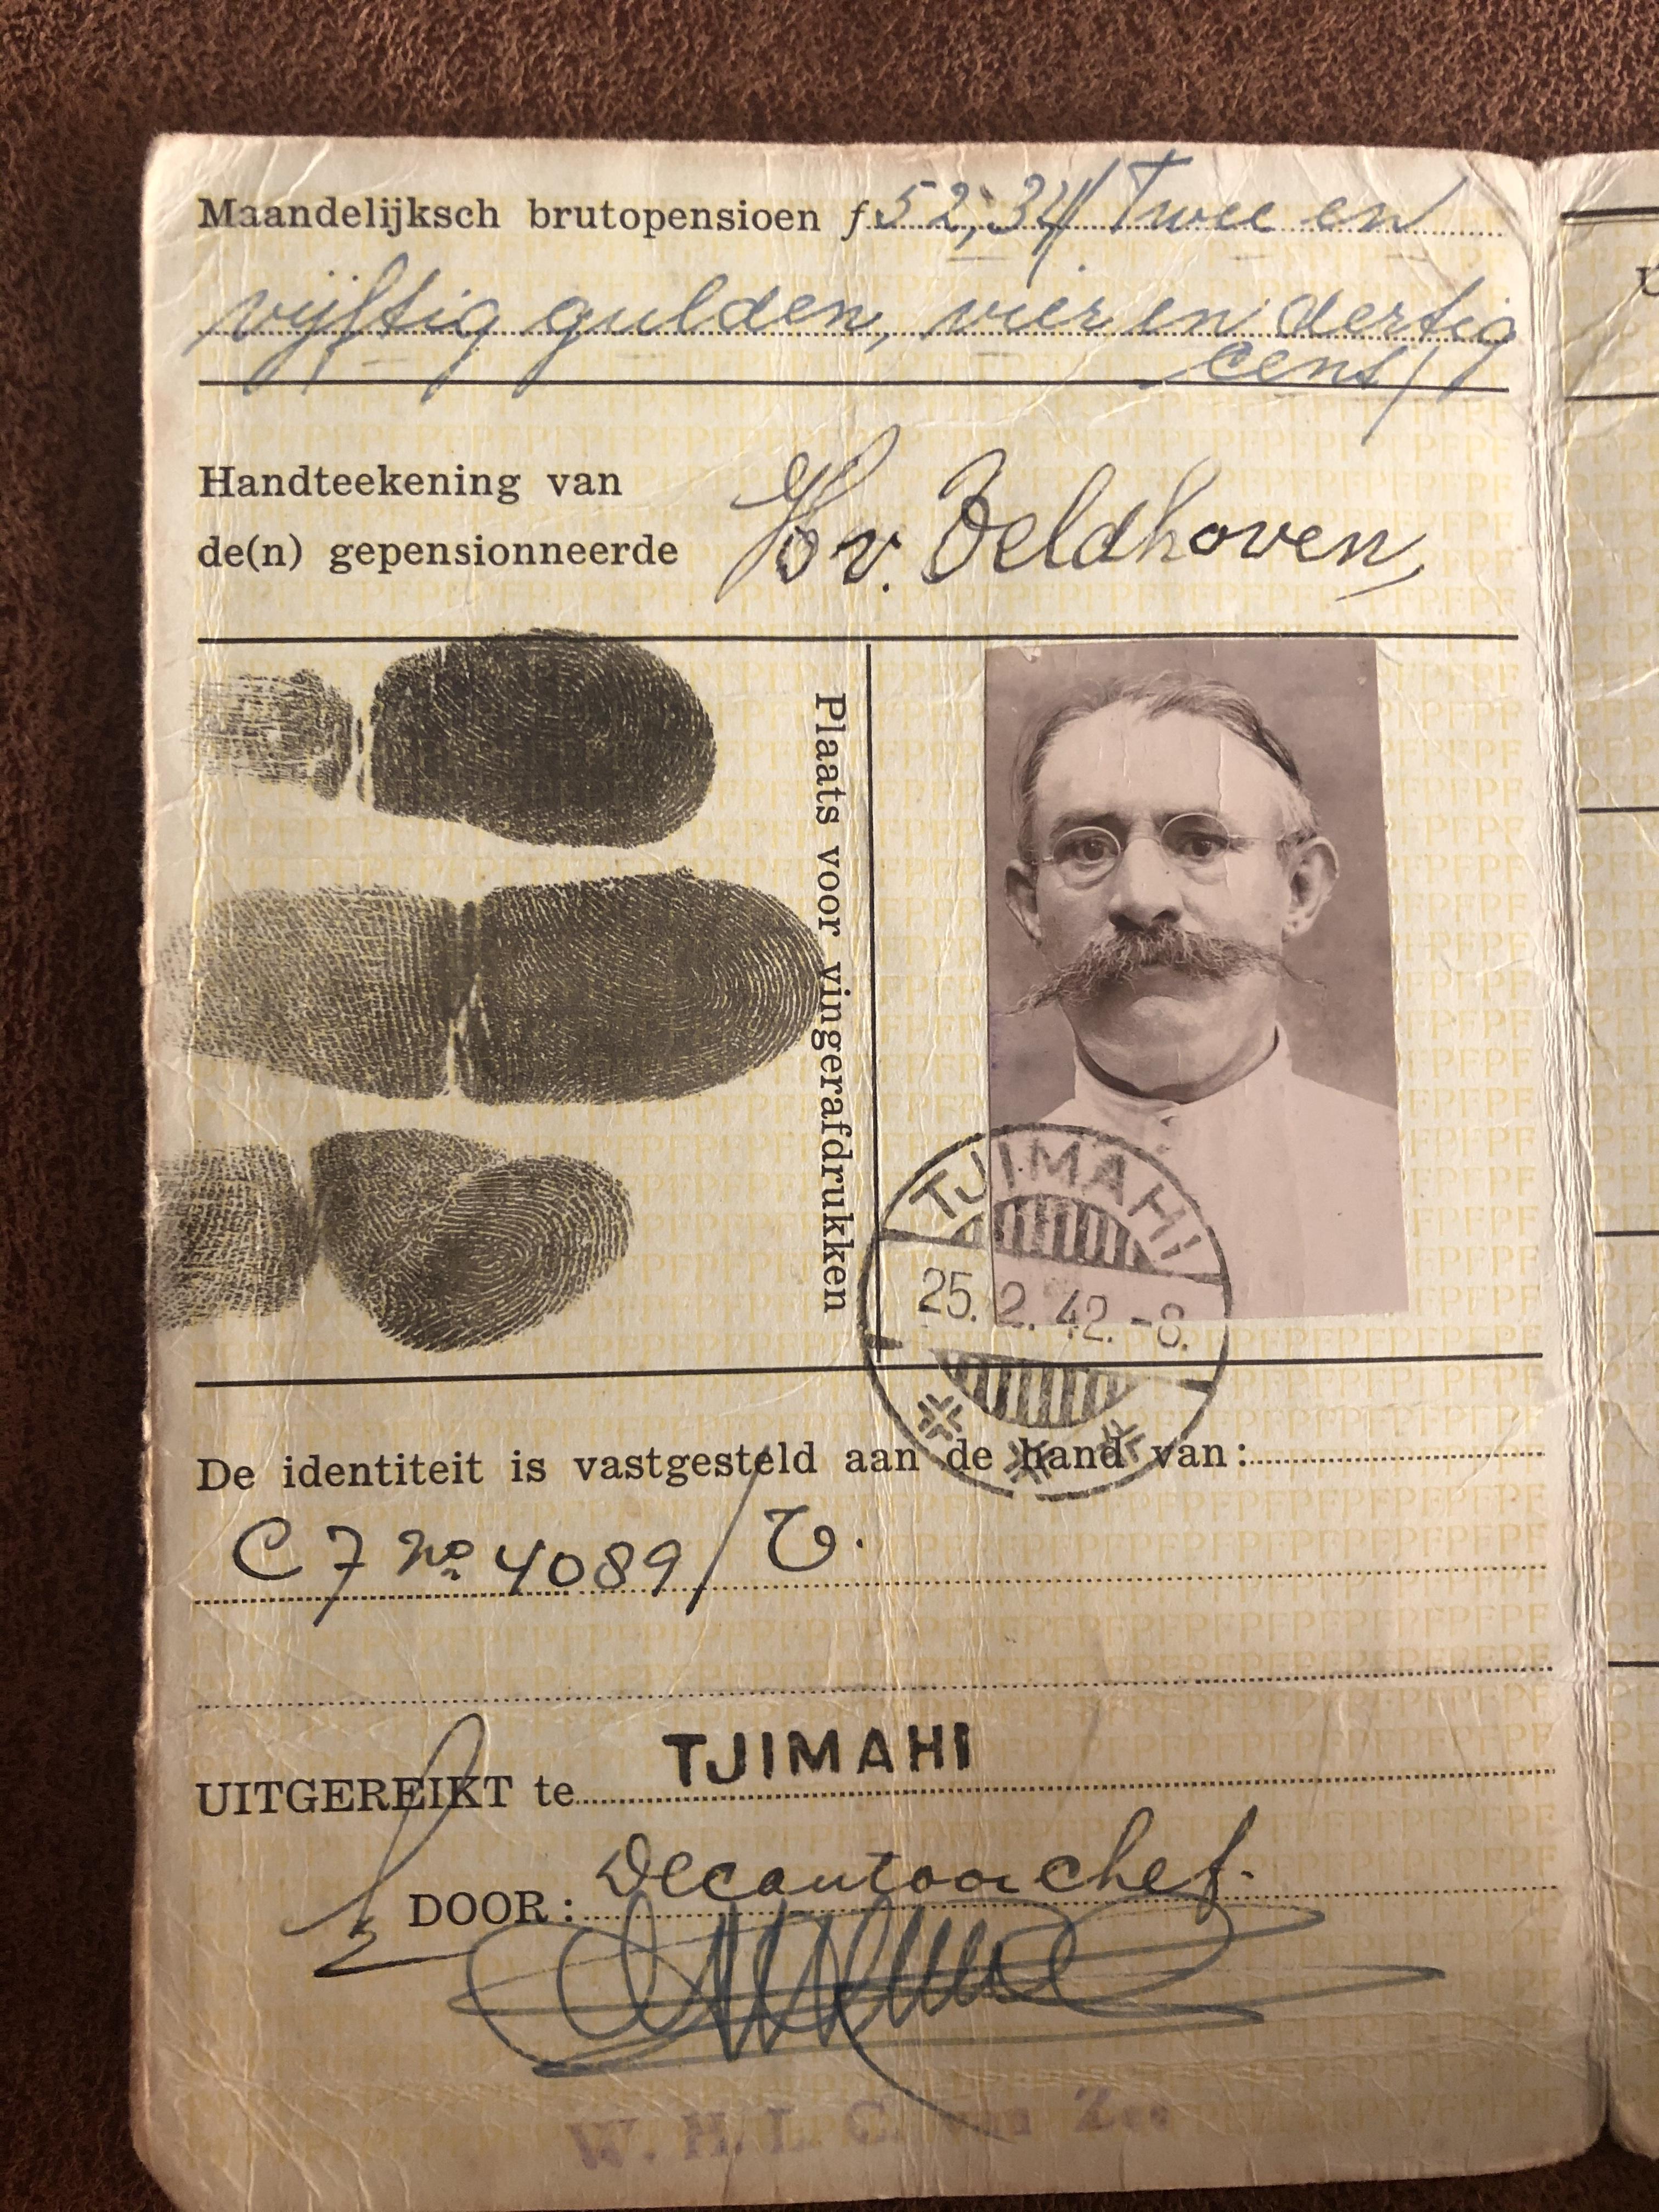 Maandelijksch brutopensioen f 52,34/ Twee en
vijftig gulden, vier en dertig
cent/
Handteekening van
de(n) gepensionneerde
H v. Veldhoven,
Plaats voor vingerafdrukken
TJIMAHI
25. 2. 42. -8.
De identiteit is vastgesteld aan de hand van:
C 7 No 4089/
UITGEREIKT te TJIMAHI
DOOR: De cantoorchef.
W. H. L. C. van